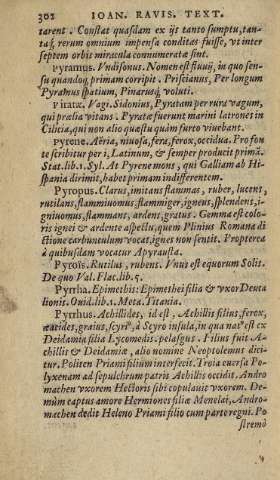 302 IOAN. RAVIS. TEXT.
rarent. Constat quasdam ex ijs tanto sumptu, tan-
taq; rerum omnium impensa conditas fuisse, vt inter
septem orbis miracula connumeratæ sint.
Pyramus. Vndisonus. Nomen est fluuij, in quo sen-
su quandoq; primam corripit. Priscianus, Per longum
Pyramus spatium, Pinarusq; voluti.
Piratæ. Vagi. Sidonius, Pyratam per rura vagum,
qui prælia vitans. Pyratæ fuerunt marini latrones in
Cilicia, qui non alio quæstu quàm furto viuebant.
Pyrene. Aëria, niuosa, fera, ferox, occidua. Pro fon
te scribitur per i, Latinum, & semper producit primã.
Stat.lib.1.Syl. At Pyrene mons, qui Galliam ab Hi-
spania dirimit, habet primam indifferentem.
Pyropus. Clarus, imitans flammas, ruber, lucens,
rutilans, flammiuomus, flammiger, igneus, splendens, i-
gniuomus, flammans, ardens, gratus. Gemma est colo-
ris ignei & ardente aspectu, quem Plinius Romana di
ctione carbunculum vocat, ignes non sentit. Propterea
à quibusdam vocatur Apyrausta.
Pyrois. Rutilus, rubens. Vnus est equorum Solit.
De quo Val.Flac.lib.5.
Pyrrha. Epimethis: Epimethei filia & vxor Deuca
lionis. Ouid.lib.1.Meta. Titania.
Pyrrhus. Achillides, id est, Achillis filius, ferox,
æacides, graius, scyri⁹, à Scyro insula, in qua nat⁹ est ex
Deidamia filia Lycomedis. pelasgus. Filius fuit A-
chillis & Deidamiæ, alio nomine Neoptolemus dici-
tur. Politen Priami filium interfecit. Troia euersa Po-
lyxenam ad sepulchrum patris Achillis occidit. Andro
machen vxorem Hectoris sibi copulauit vxorem. De-
mùm captus amore Hermiones filiæ Menelai, Andro-
machen dedit Heleno Priami filio cum parte regni. Po
stremò